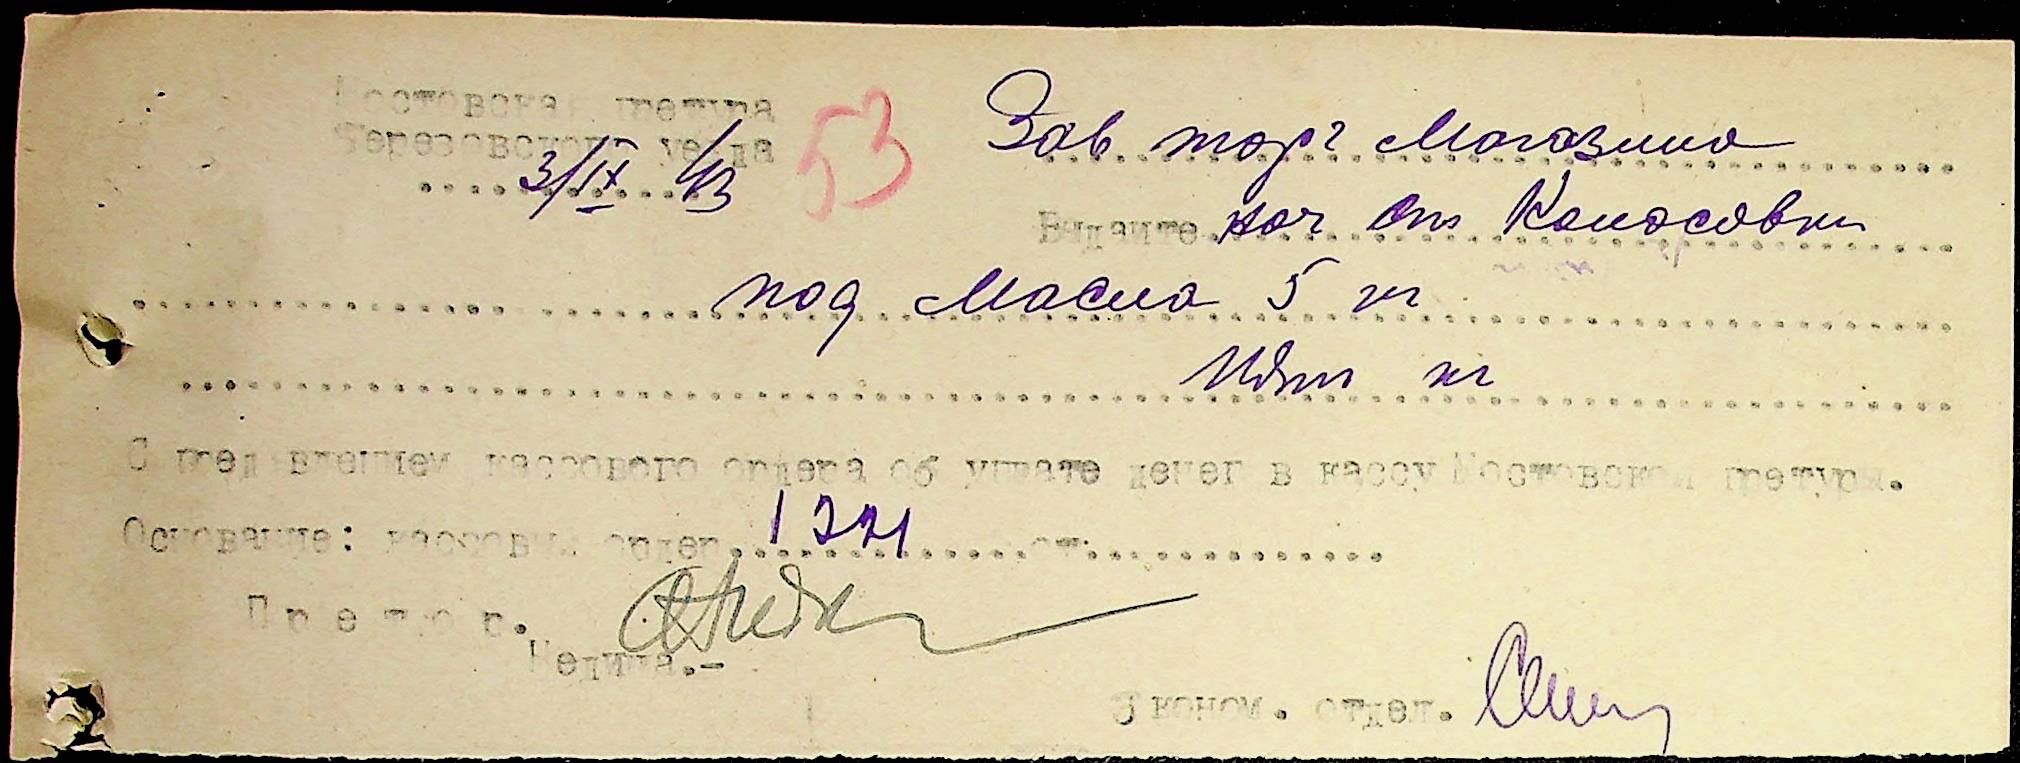 Мостовская претура
Березовского уезда
3/IX 43
53
Зав торг Магазина
Выдайте нач ст Колосовки
под Масла 5 кг
Пять кг
С пред'явлением кассового ордера об уплате денег в кассу Мостовской претуры.
Основание: кассовый ордер 1221 от
Претор.
Эконом. отдел.